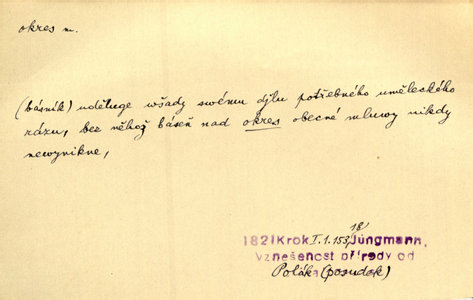 okres m.
(básník) uděluge wšady swému djlu potřebného uměleckého
rázu, bez něhož báseň nad okres obecné mluwy nikdy
newynikne,
18
1821 Krok I.1.153, Jungmann,
Vznešenost přírody od
Poláka (posudek)